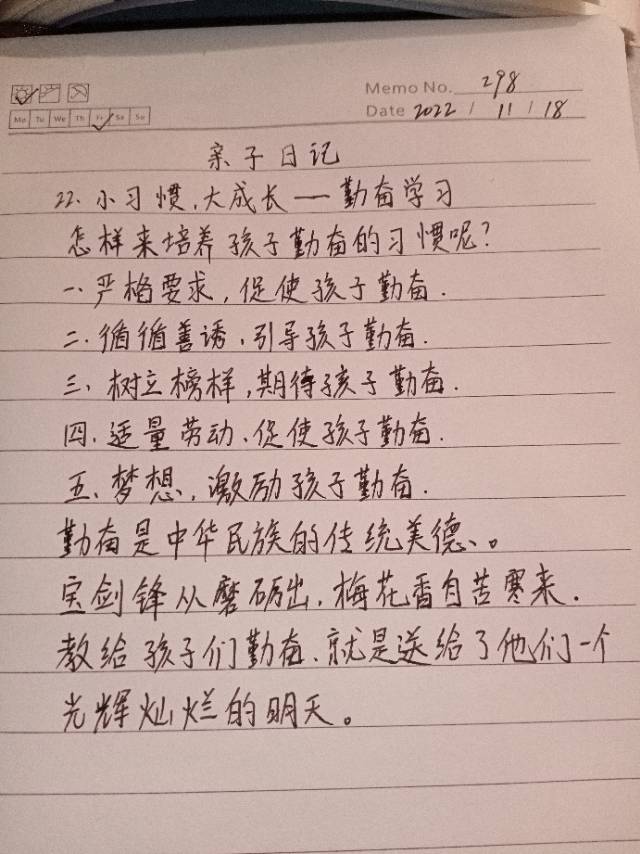 Memo No. 298
Mo Tu We Th Fr Sa Su
Date 2022 / 11 / 18
亲子日记
22、小习惯,大成长——勤奋学习
怎样来培养孩子勤奋的习惯呢?
一、严格要求,促使孩子勤奋.
二、循循善诱,引导孩子勤奋.
三、树立榜样,期待孩子勤奋.
四、适量劳动、促使孩子勤奋.
五、梦想,激励孩子勤奋.
勤奋是中华民族的传统美德、。
宝剑锋从磨砺出,梅花香自苦寒来.
教给孩子们勤奋、就是送给了他们一个
光辉灿烂的明天。